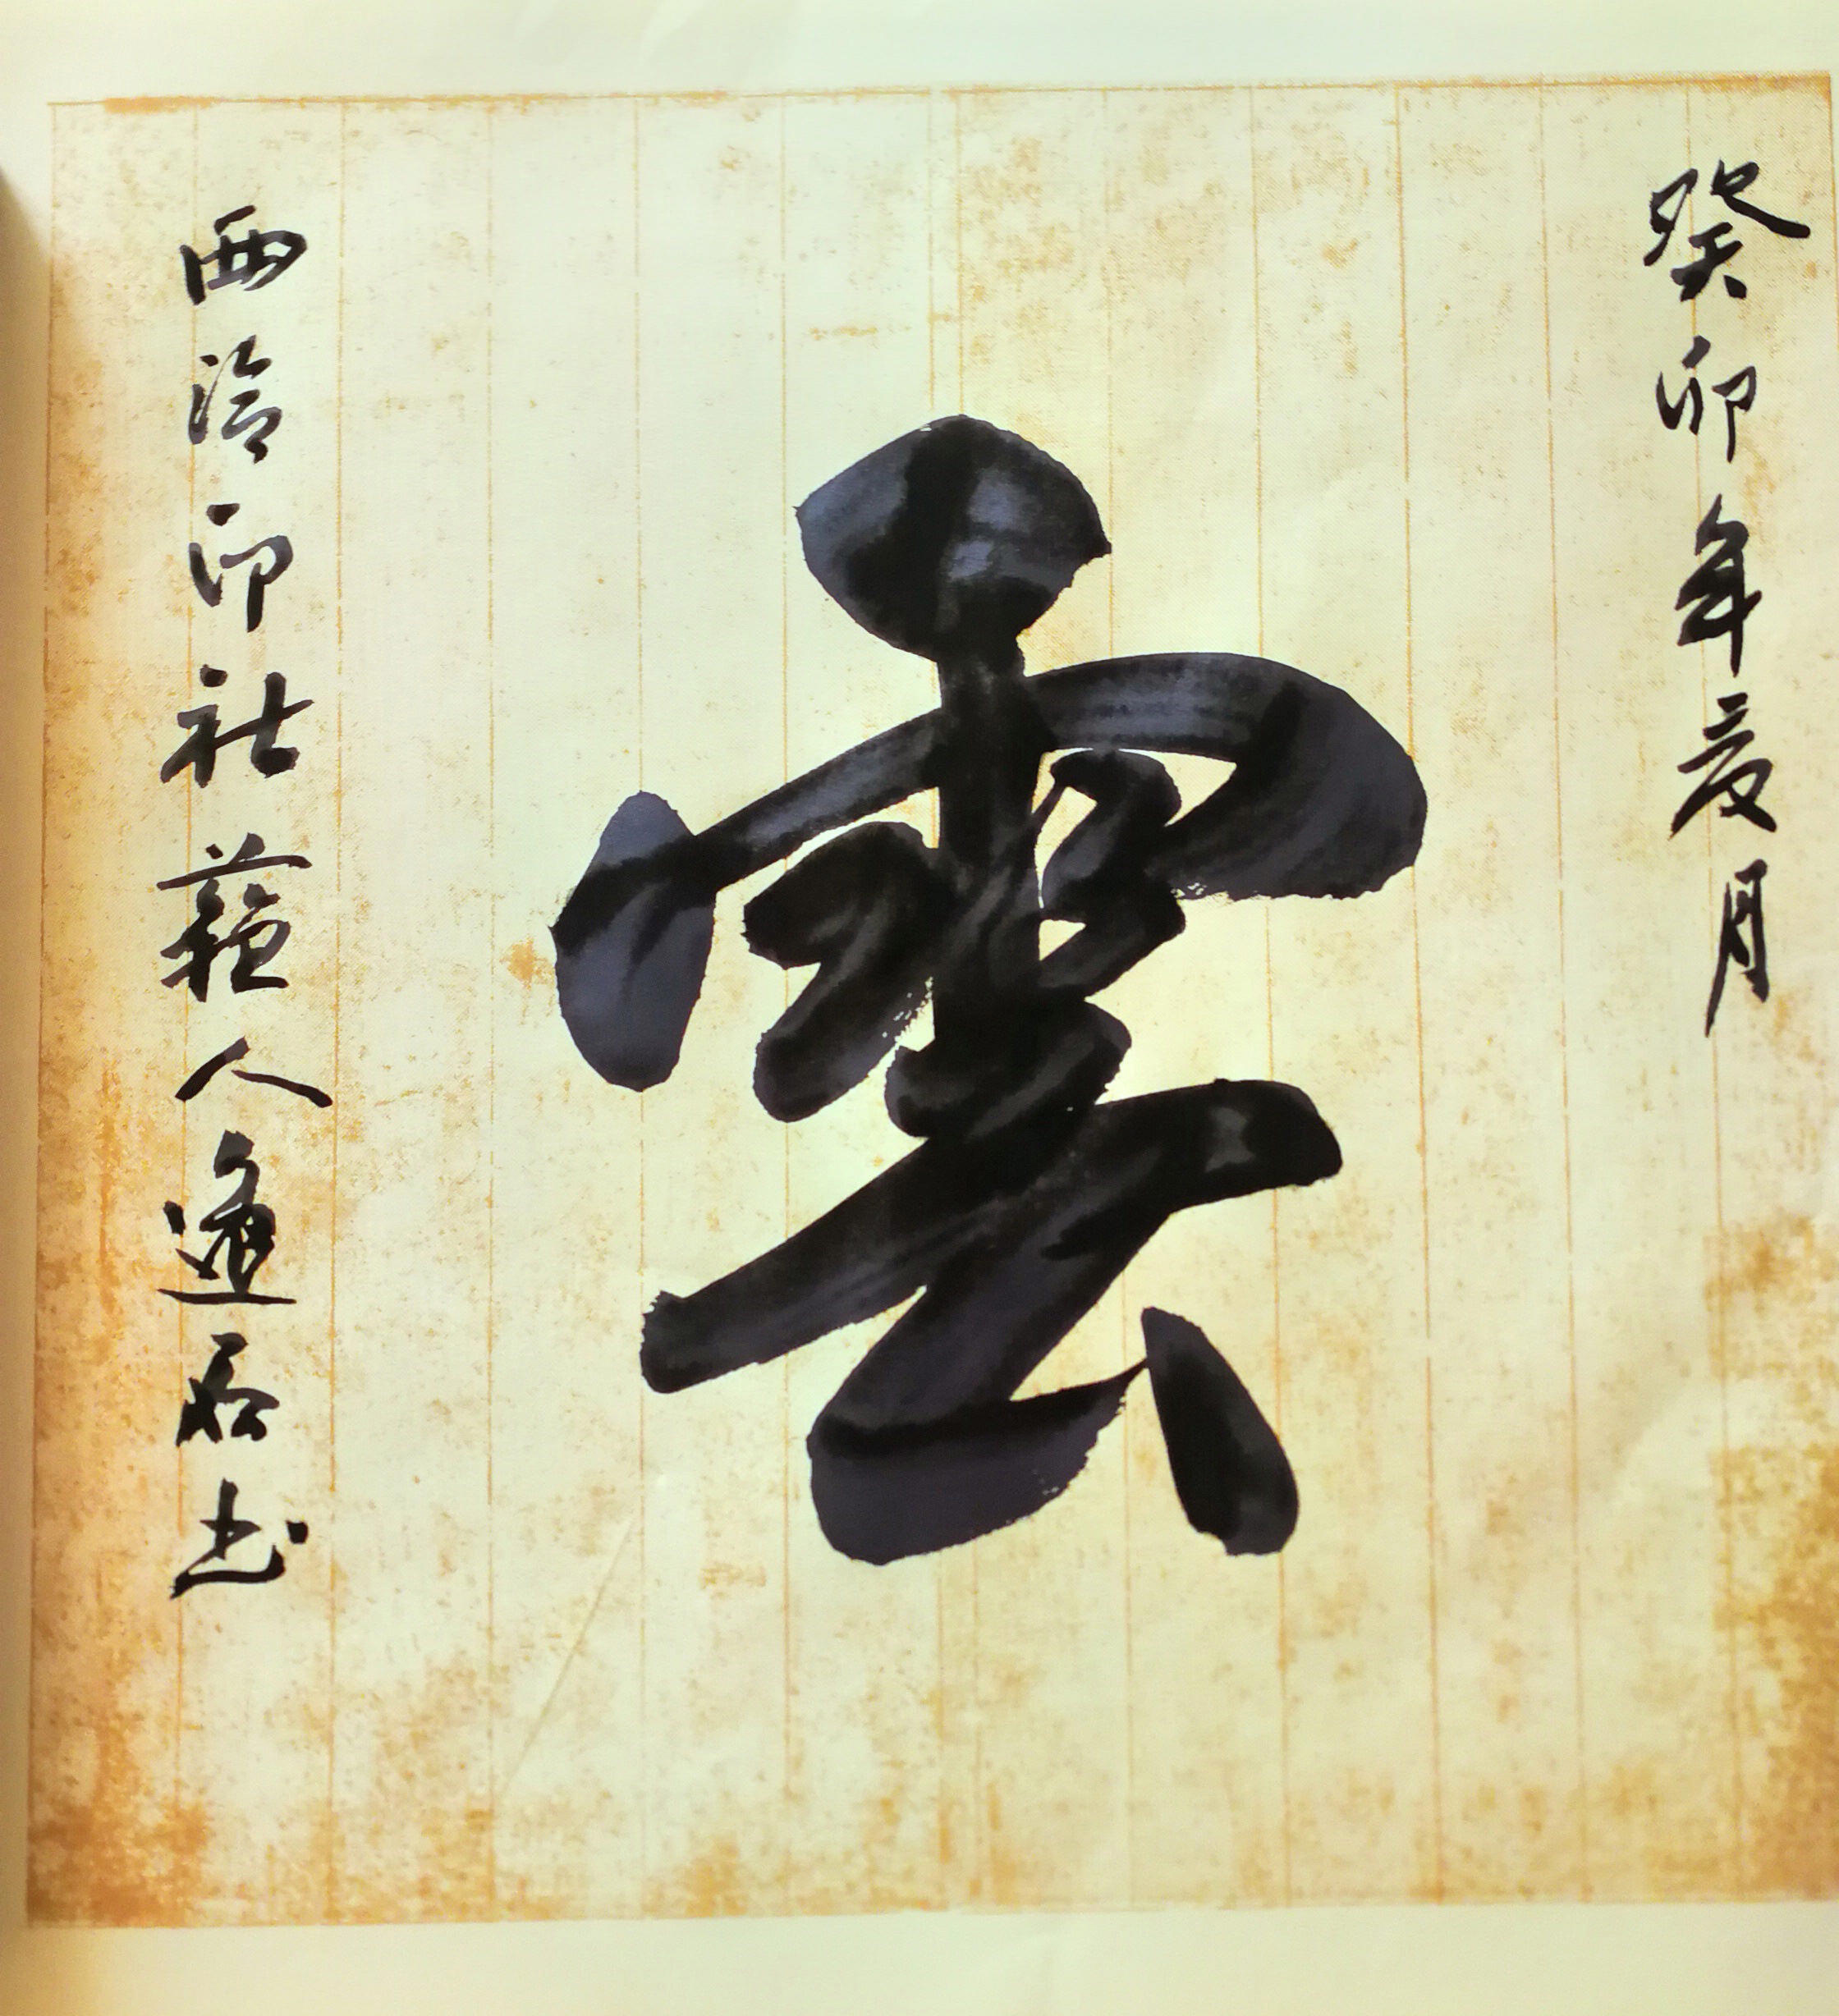 癸卯年夏月
雲
西泠印社人逸书